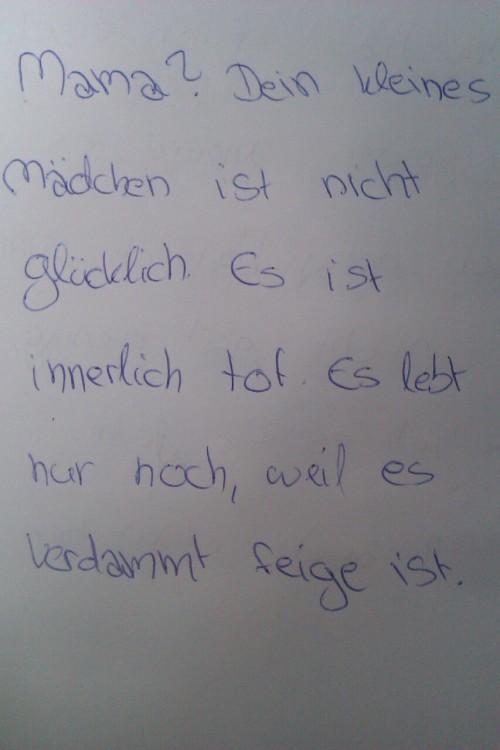 Mama? Dein kleines
Mädchen ist nicht
glücklich. Es ist
innerlich tot. Es lebt
nur noch, weil es
verdammt feige ist.